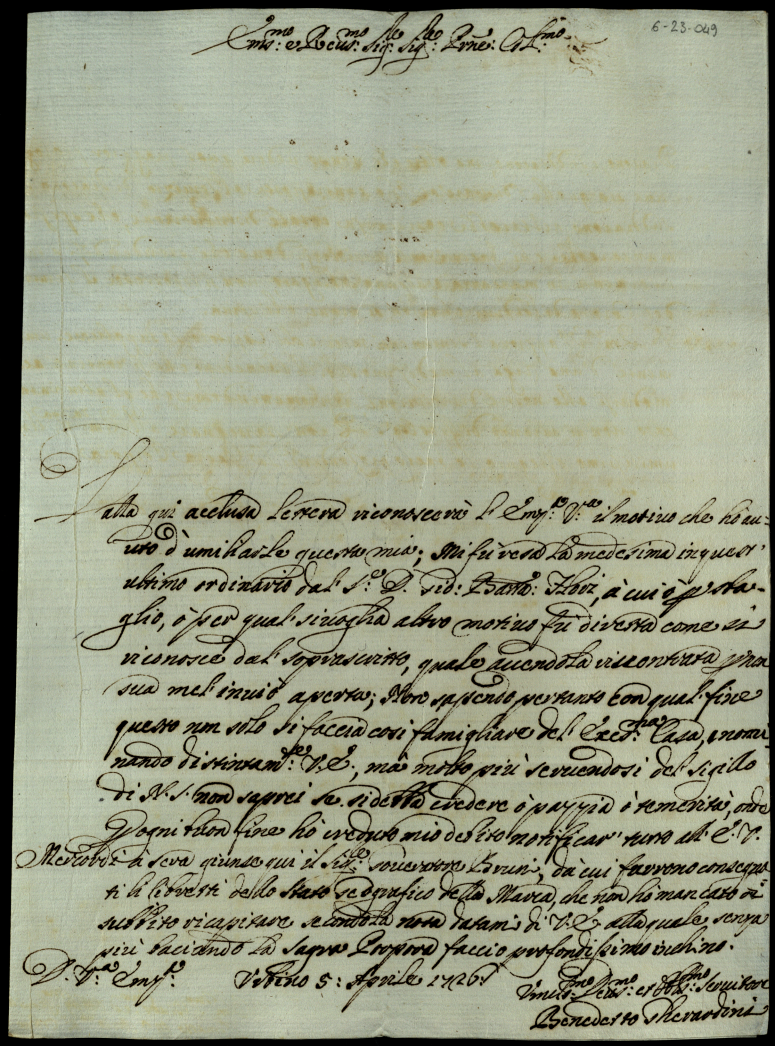 6-23-049
Em.mo e Reu.mo Sig.re Sig.re Prne: Col.mo
Dalla qui acclusa lettera riconoscerà l'Em.za V.ra il motivo che hò au-
uto d'umiliarle questa mia; Mi fù resa la medesima in quest'
ultimo ordinario dal S.r D. Gio: Batta: Flori, à cui ò p sba-
glio, ò per qual siuoglia altro motivo fù diretta come si
riconosce dal soprascritto, quale auendola riscontrata p non
sua mel'inuiò aperta; Non sapendo pertanto con qual fine
questo non solo si faccia così famigliare dell'Ecc.ma Casa, nomi
nando distintam.te V.E., mà molto più seruendosi del sigillo
di N.S. non saprei se si debba credere ò pazzia ò temerità, onde
p ogni buon fine hò creduto mio debito notificar' tutto all'E.V.
Mercordì à sera giunse qui il Sig.re Gouernatore Bruni, da cui furrono consegna
ti li libretti dello Stato Geografico della Marca, che non hò mancato di
subbito ricapitare secondo la nota datami di V.E. alla quale senza
più baciando la Sagra Porpora faccio profondissimo inchino.
D. V.ra Em.za Urbino 5: Aprile 1726
Umiliss.mo Deu.mo et Obl.mo Seruitore
Benedetto Gherardini